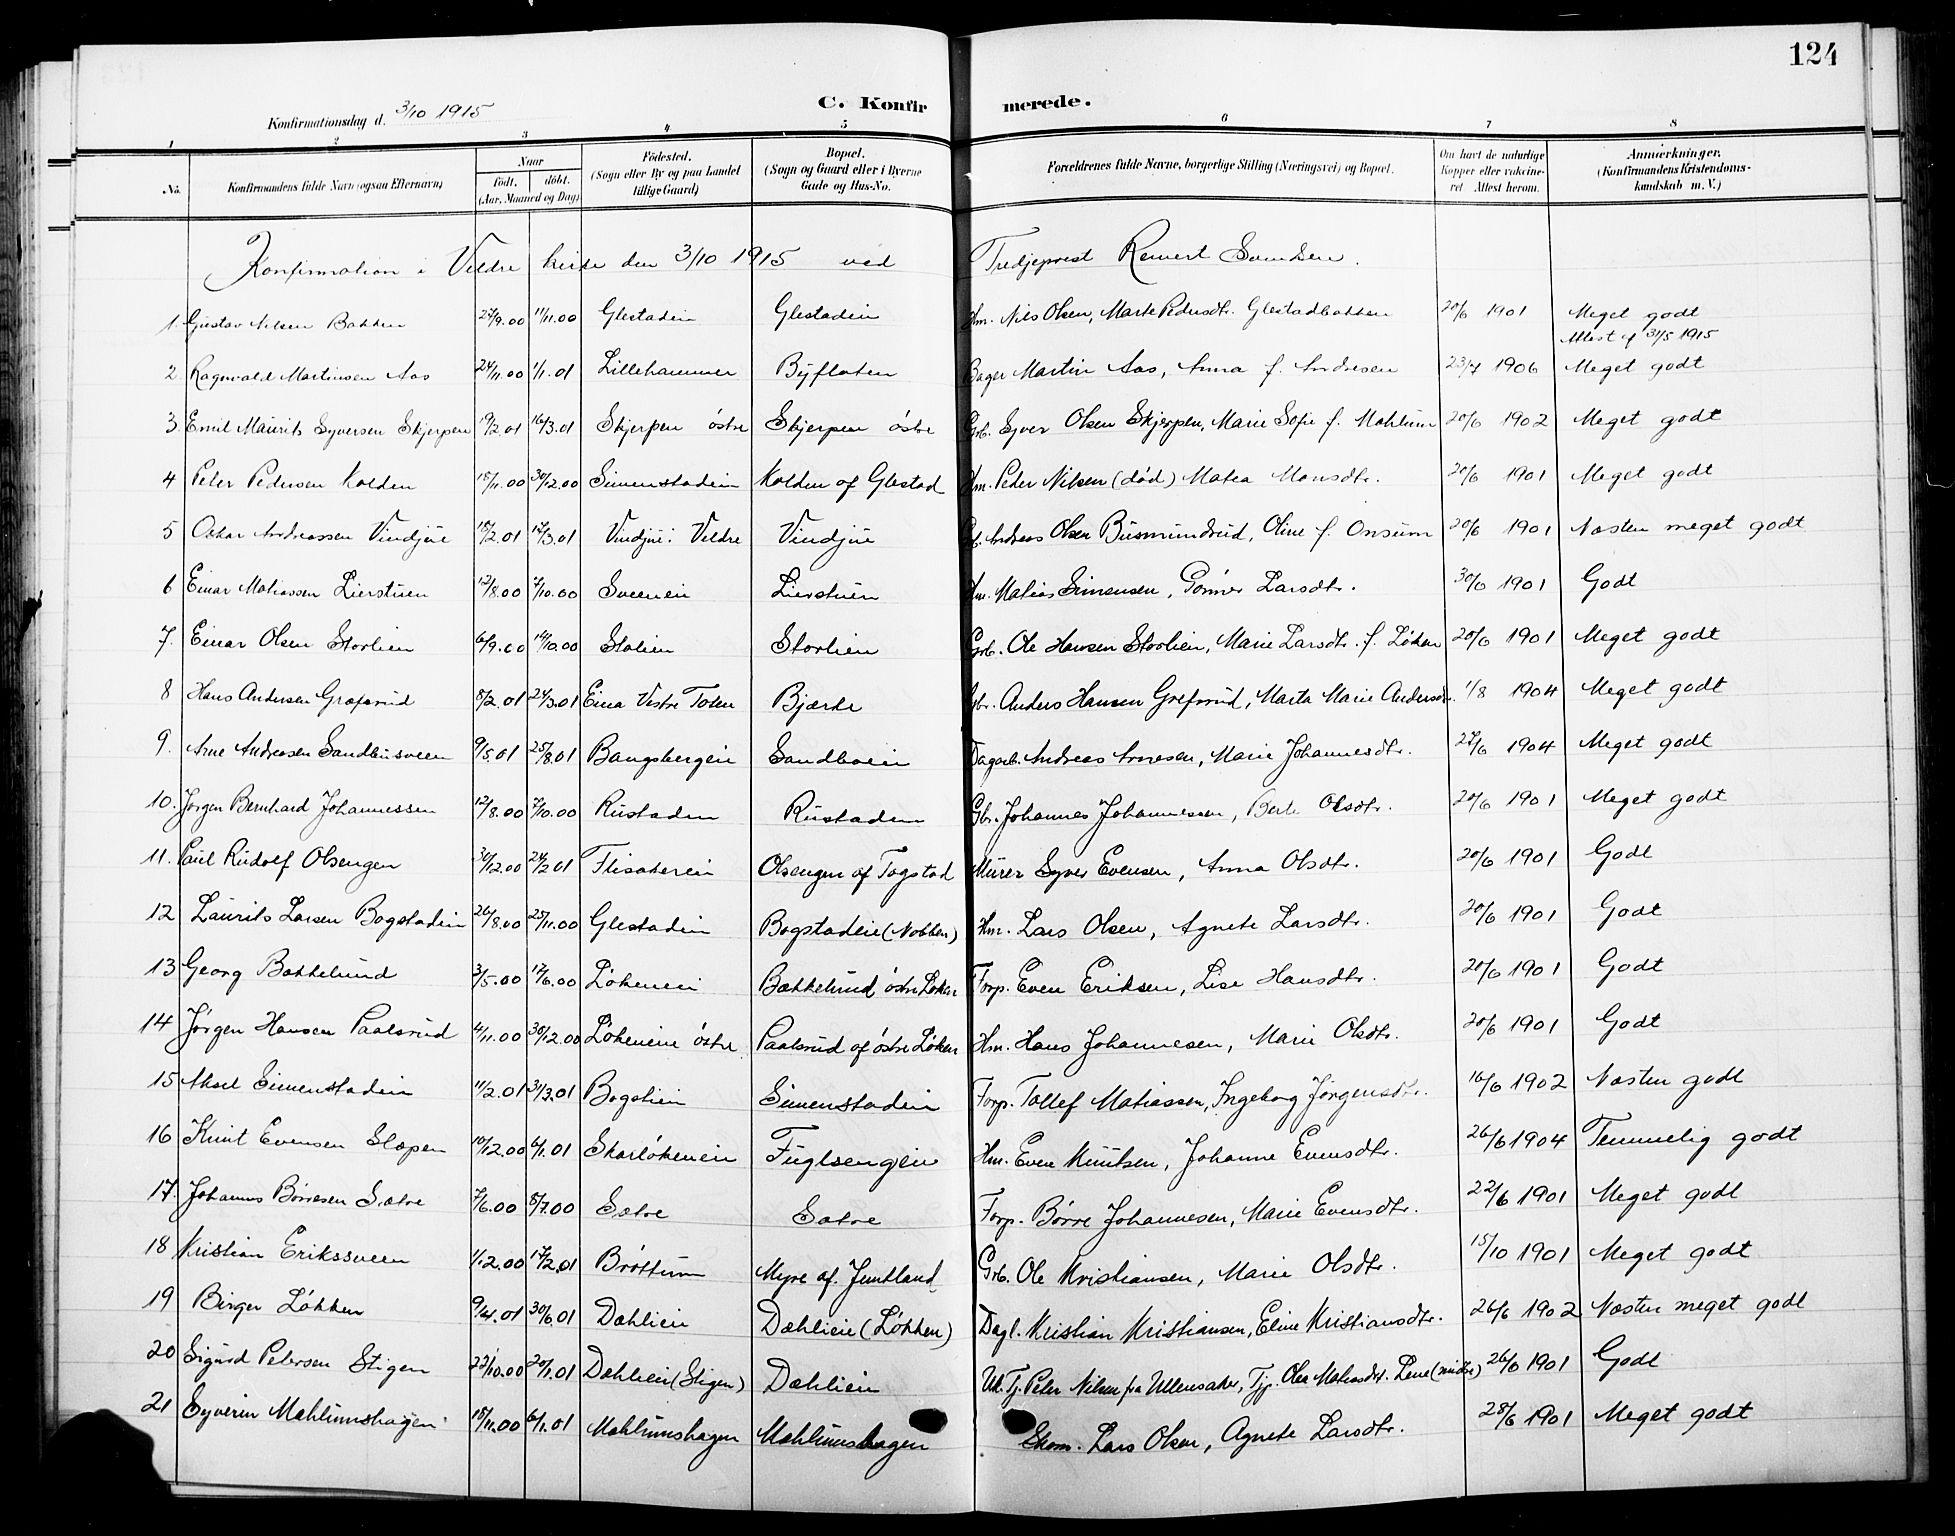 124
C. Konfirmerede.
Konfirmationsdag d. 3/10 1915
1 2 3 4 5 6 7 8
No. Konfirmandens fulde Navn (ogsaa Efternavn) Naar født. døbt. (Aar, Maaned og Dag) Födested. (Sogn eller By og paa Landet tillige Gaard) Bopæl. (Sogn og Gaard eller i Byerne Gade og Hus-No. Forældrenes fulde Navne, borgerlige Stilling (Næringsvei) og Bopæl. Om havt de naturlige Kopper eller vaccineret Attest herom. Anmærkninger. (Konfirmandens Kristendomskundskab m. V.)
Konfirmation i Veldre kirke den 3/10 1915 ved Tredjeprest Reinert Svendsen.
1. Gustav Nilsen Bakken 27/9.00 11/11.00 Glestadeie Glestadeie Hm. Nils Olsen, Marte Pedersdtr. Glestadbakken 20/6 1901 Meget godt
Attest af 31/5 1915
2 Ragnvald Martinsen Aas 24/11.00 1/1.01 Lillehammer Byflaten Bager Martin Aas, Anna f. Andresen 23/7 1906 Meget godt
3 Emil Maurits Syversen Skjerpen 19/2.01 16/3.01 Skjerpen østre Skjerpen østre Grb. Syver Olsen Skjerpen, Marie Sofie f. Mæhlum 20/6 1902 Meget godt
4 Peter Pedersen Kolden 15/11.00 30/12.00 Simenstadeie Kolden af Glestad Hm. Peder Nilsen (død) Matea Monsdtr. 20/6 1901 Meget godt
5 Oskar Andreassen Vindjue 15/2.01 17/3.01 Vindjue i Veldre Vindjue Andreas Olsen Busmundrud, Oline f. Onsum 20/6 1901 Næsten meget godt
6 Einar Matiassen Lierstuen 12/8.00 7/10.00 Sveeneie Lierstuen Hm. Matias Simensen, Gønner Larsdtr. 30/6 1901 Godt
7. Einar Olsen Storlien 6/9.00 14/10.00 Stolien Storlien Grb. Ole Hansen Storlien, Marie Larsdtr. f. Løken 20/6 1901 Meget godt
8 Hans Andersen Græfsrud 8/2.01 24/3.01 Eina Vestre Toten Bjærke Gbr. Anders Hansen Grefsrud, Marta Marie Andersdtr. 1/8 1904 Meget godt
9. Arne Andreasen Sandbusveen 9/5.01 25/8.01 Bangsbergeie Sandboeie Dagarb. Andreas Arnesen, Marie Johannesdtr. 27/6 1904 Meget godt
10. Jørgen Bernhard Johannessen 12/8.00 7/10.00 Rustaden Rustaden Gbr. Johannes Johannessen, Berte Olsdtr. 20/6 1901 Meget godt
11. Paul Rudolf Olsengen 30/12.00 24/2 01 Flisakereie Olsengen af Togstad Murer Syver Evensen, Anna Olsdtr. 20/6 1901 Godt
12 Laurits Larsen Bogstadeie 26/8.00 25/11.00 Glestadeie Bogstadeie (Nobben) Hm. Lars Olsen, Agnete Larsdtr. 20/6 1901 Godt
13 Georg Bækkelund 3/5.00 17/6.00 Løkeneie Bækkelund østre Løken Forp. Even Eriksen, Lise Hansdtr. 20/6 1901 Godt
14 Jørgen Hansen Paalsrud 4/11.00 30/12.00 Løkeneie østre Paalsrud af østre Løken Hm. Hans Johannesen, Marie Olsdtr. 20/6 1901 Godt
15 Aksel Simenstadeie 11/2.01 31/3.01 Bogslien Simenstadeie Forp. Tollef Matiassen, Ingeborg Jørgensdtr. 16/6 1902 Næsten godt
16 Knut Evensen Slæpen 10/12.00 6/1.01 Skarløkeneie Fuglsengeie Hm. Even Knutsen, Johanne Evensdtr. 26/6 1904 Temmelig godt
17. Johannes Børresen Sætre 7/6.00 8/7.00 Sætre Sætre Forp. Børre Johannesen, Marie Evensdtr. 22/6 1901 Meget godt
18 Kristian Erikssveen 1/12.00 17/2.01 Brøttum Myre af Jemtland Grb. Ole Kristiansen, Marie Olsdtr. 15/10 1901 Meget godt
19 Birger Løkken 9/4.01 30/6.01 Dæhlieie Dæhlieie (Løkken) Dagl. Kristian Kristiansen, Eline Kristiansdtr. 26/6 1902 Næsten meget godt
20 Sigurd Petersen Stigen 22/10.00 20/1.01 Dæhlieie (Stigen) Dæhlieie Uk. Tj. Peter Nilsen fra Ullensaker, Tjp. Olea Matiasdtr. Lene 26/6 1901 Godt
21 Syverin Mæhlumshagen 15/11.00 6/1.01 Mæhlumshagen Mæhlumshagen Skom. Lars Olsen, Agnete Larsdtr. 28/6 1901 Meget godt